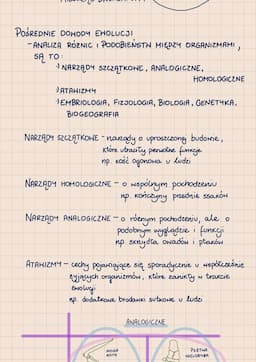 POŚREDNIE DOWODY EWOLUCJI
- ANALIZA RÓŻNIC I PODOBIEŃSTW MIĘDZY ORGANIZMAMI,
SĄ TO:
› NARZĄDY SZCZĄTKOWE, ANALOGICZNE,
HOMOLOGICZNE
› ATAWIZMY
› EMBRIOLOGIA, FIZJOLOGIA, BIOLOGIA, GENETYKA,
BIOGEOGRAFIA
NARZĄDY SZCZĄTKOWE - narządy o uproszczonej budowie,
które utraciły pierwotne funkcje
np. kość ogonowa u ludzi
NARZĄDY HOMOLOGICZNE - o wspólnym pochodzeniu
np. kończyny przednie ssaków
NARZĄDY ANALOGICZNE - o różnym pochodzeniu, ale o
podobnym wyglądzie i funkcji
np. skrzydła owadów i ptaków
ATAWIZMY - cechy pojawiające się sporadycznie u współcześnie
żyjących organizmów, które zanikły w trakcie
ewolucji
np. dodatkowe brodawki sutkowe u ludzi
ANALOGICZNE
PŁETWA